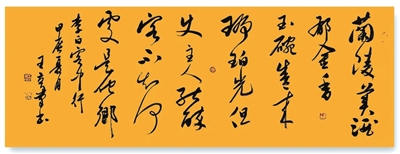 蘭陵美酒
郁金香
玉碗盛来
琥珀光但
使主人能醉
客不知何
处是他鄉
李白客中行
甲庚夏月